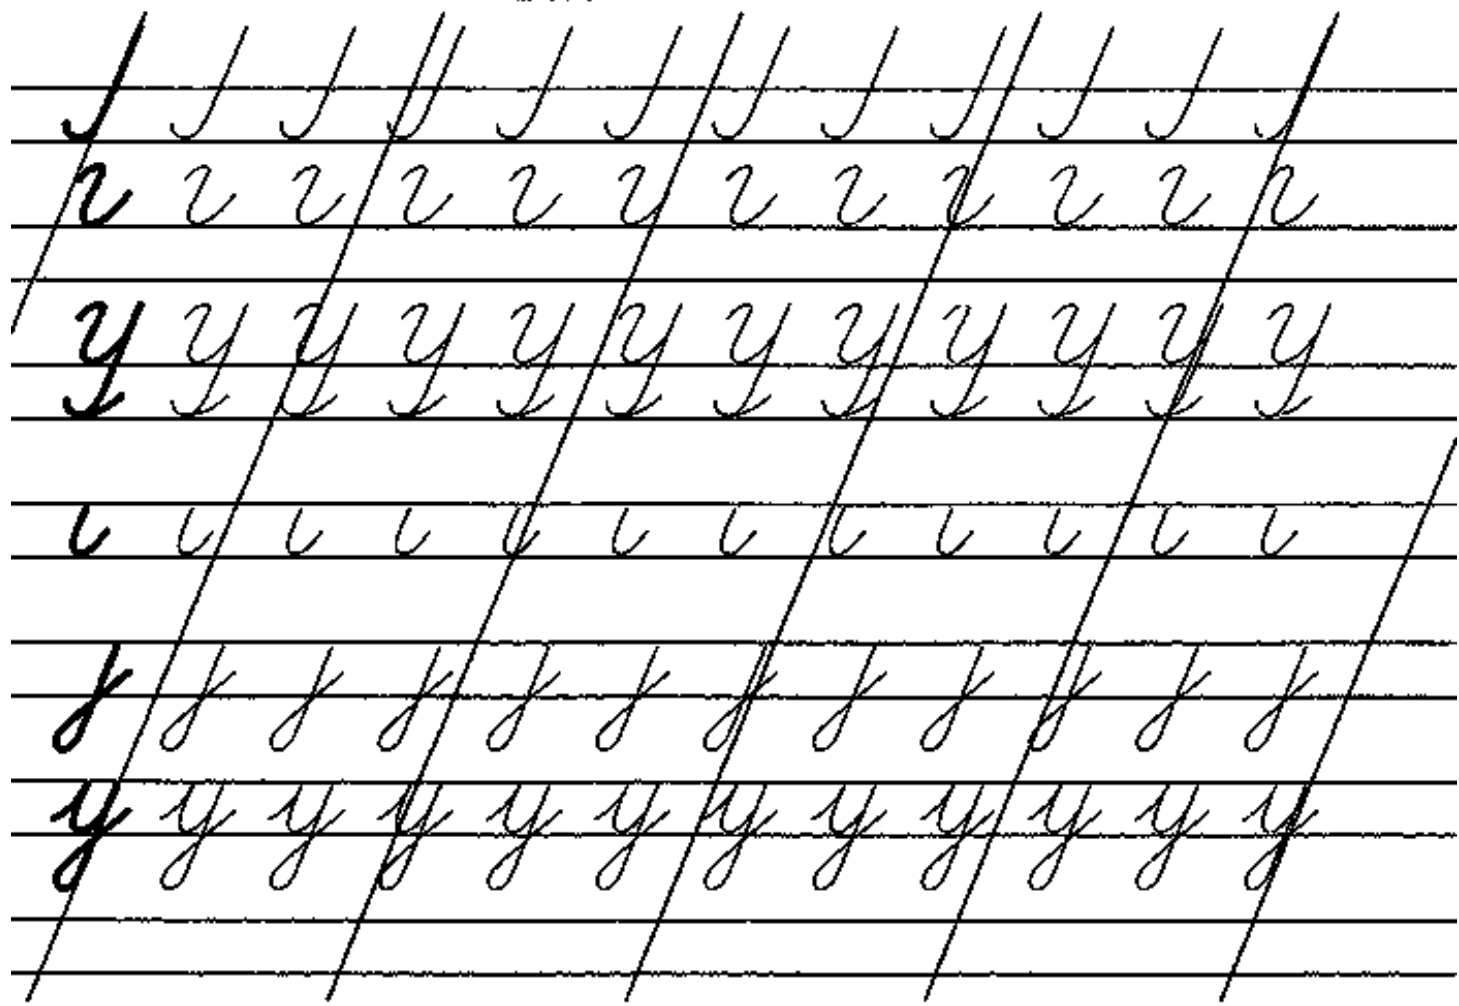 У У У У У У У У У У У У
у у у у у у у у у у у у